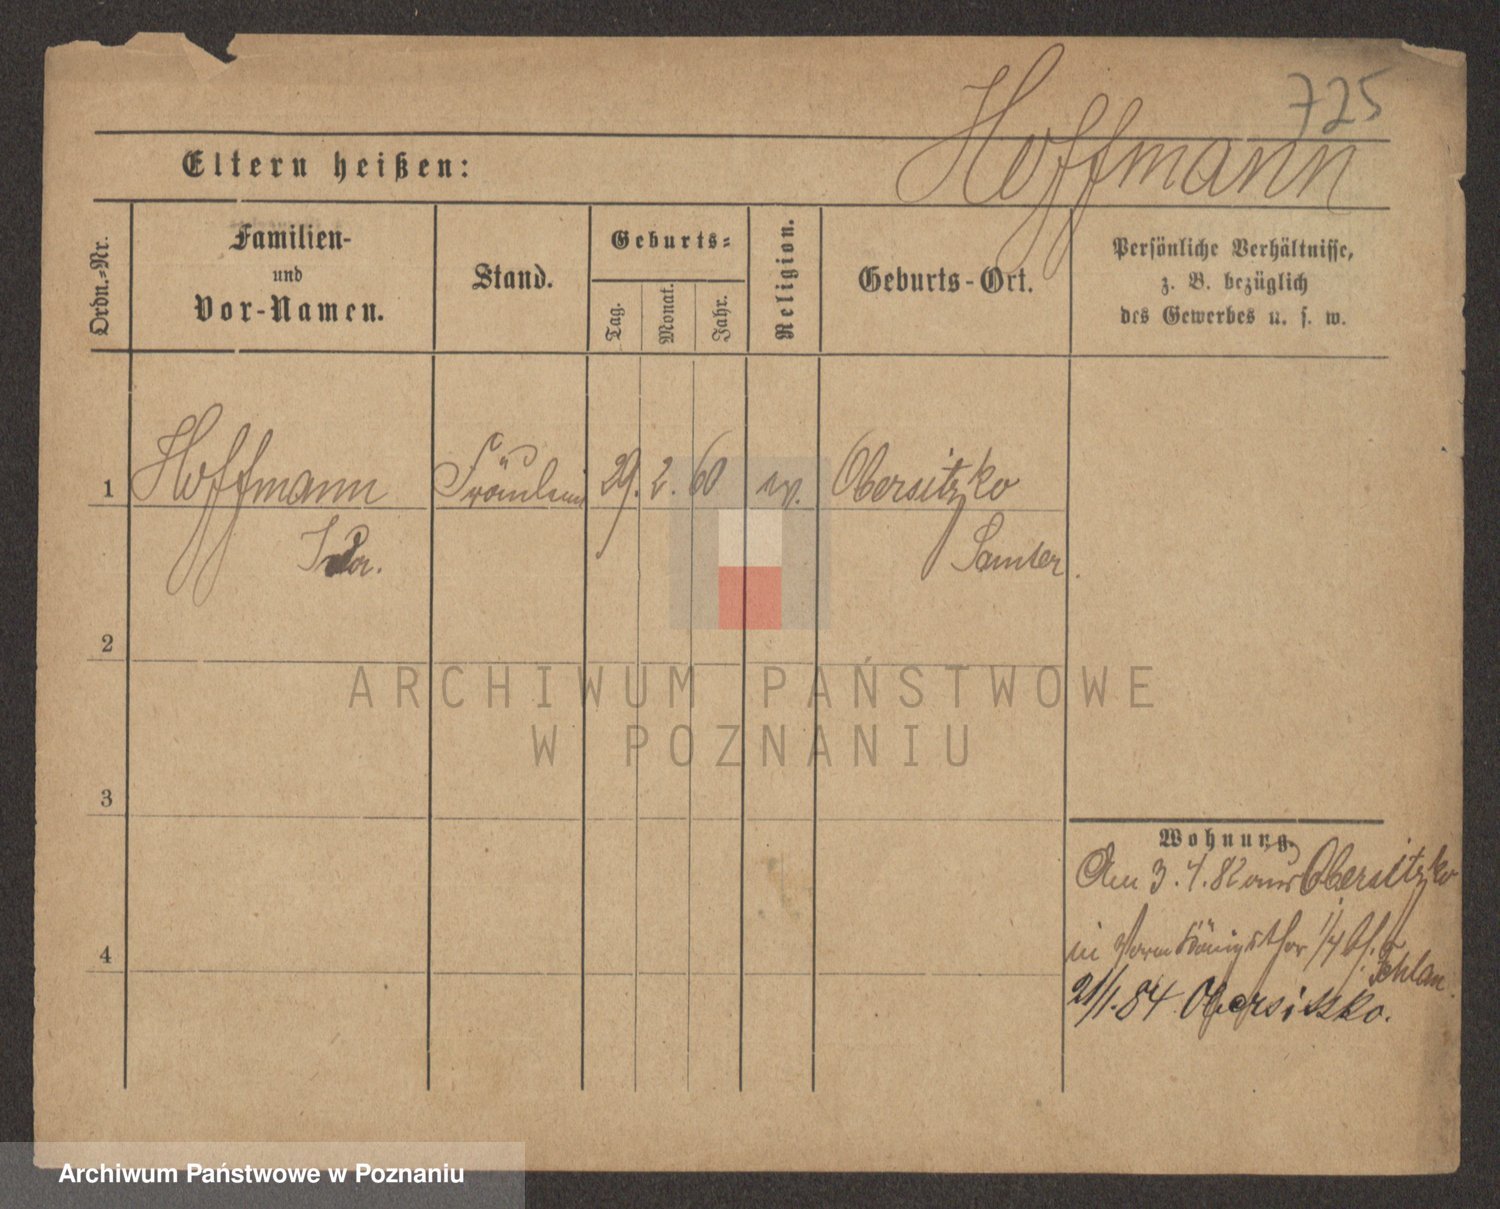 725
Hoffmann
Eltern heißen:
Ordn.-Nr.
Familien-
und
Vor-Namen.
Stand.
Geburts-
Tag.
Monat.
Jahr.
Religion.
Geburts-Ort.
Persönliche Verhältnisse,
z. B. bezüglich
des Gewerbes u. s. w.
1 Hoffmann Fräulein 29. 2. 60 ev. Obersitzko
Ida. Samter.
2
3
4
Wohnung.
Am 3.4.82 aus Obersitzko
in vorm Königsthor 1/4 bf.
21/1.84 Obersitzko.
ARCHIWUM PAŃSTWOWE
W POZNANIU
Archiwum Państwowe w Poznaniu